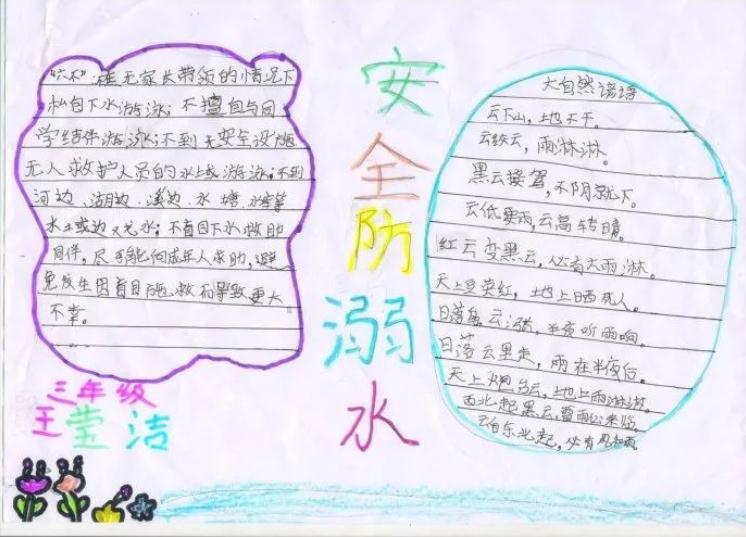 "六不"准无家长带领的情况下
私自下水游泳；不擅自与同
学结伴游泳；不到无安全设施
无人救护人员的水域游泳；不到
河边、湖边、溪边、水塘、水库等
水
同伴，尽可能向成年人求助，避
免发生因盲目施救而导致更大
不幸。
三年级
王莹洁
安
全
防
溺
水
大自然谚语
云下山，地不干。
云绞云，雨淋淋。
黑云接驾，不阴就下。
云低要雨，云高转晴。
红云变黑云，必有大雨淋。
天上豆荚红，地上晒死人。
日落 云涨，半夜听雨响。
日落云里走，雨在半夜后。
天上炮台云，地上雨淋淋。
西北起黑云，雷雨必来临。
云自东北起，必有风和雨。